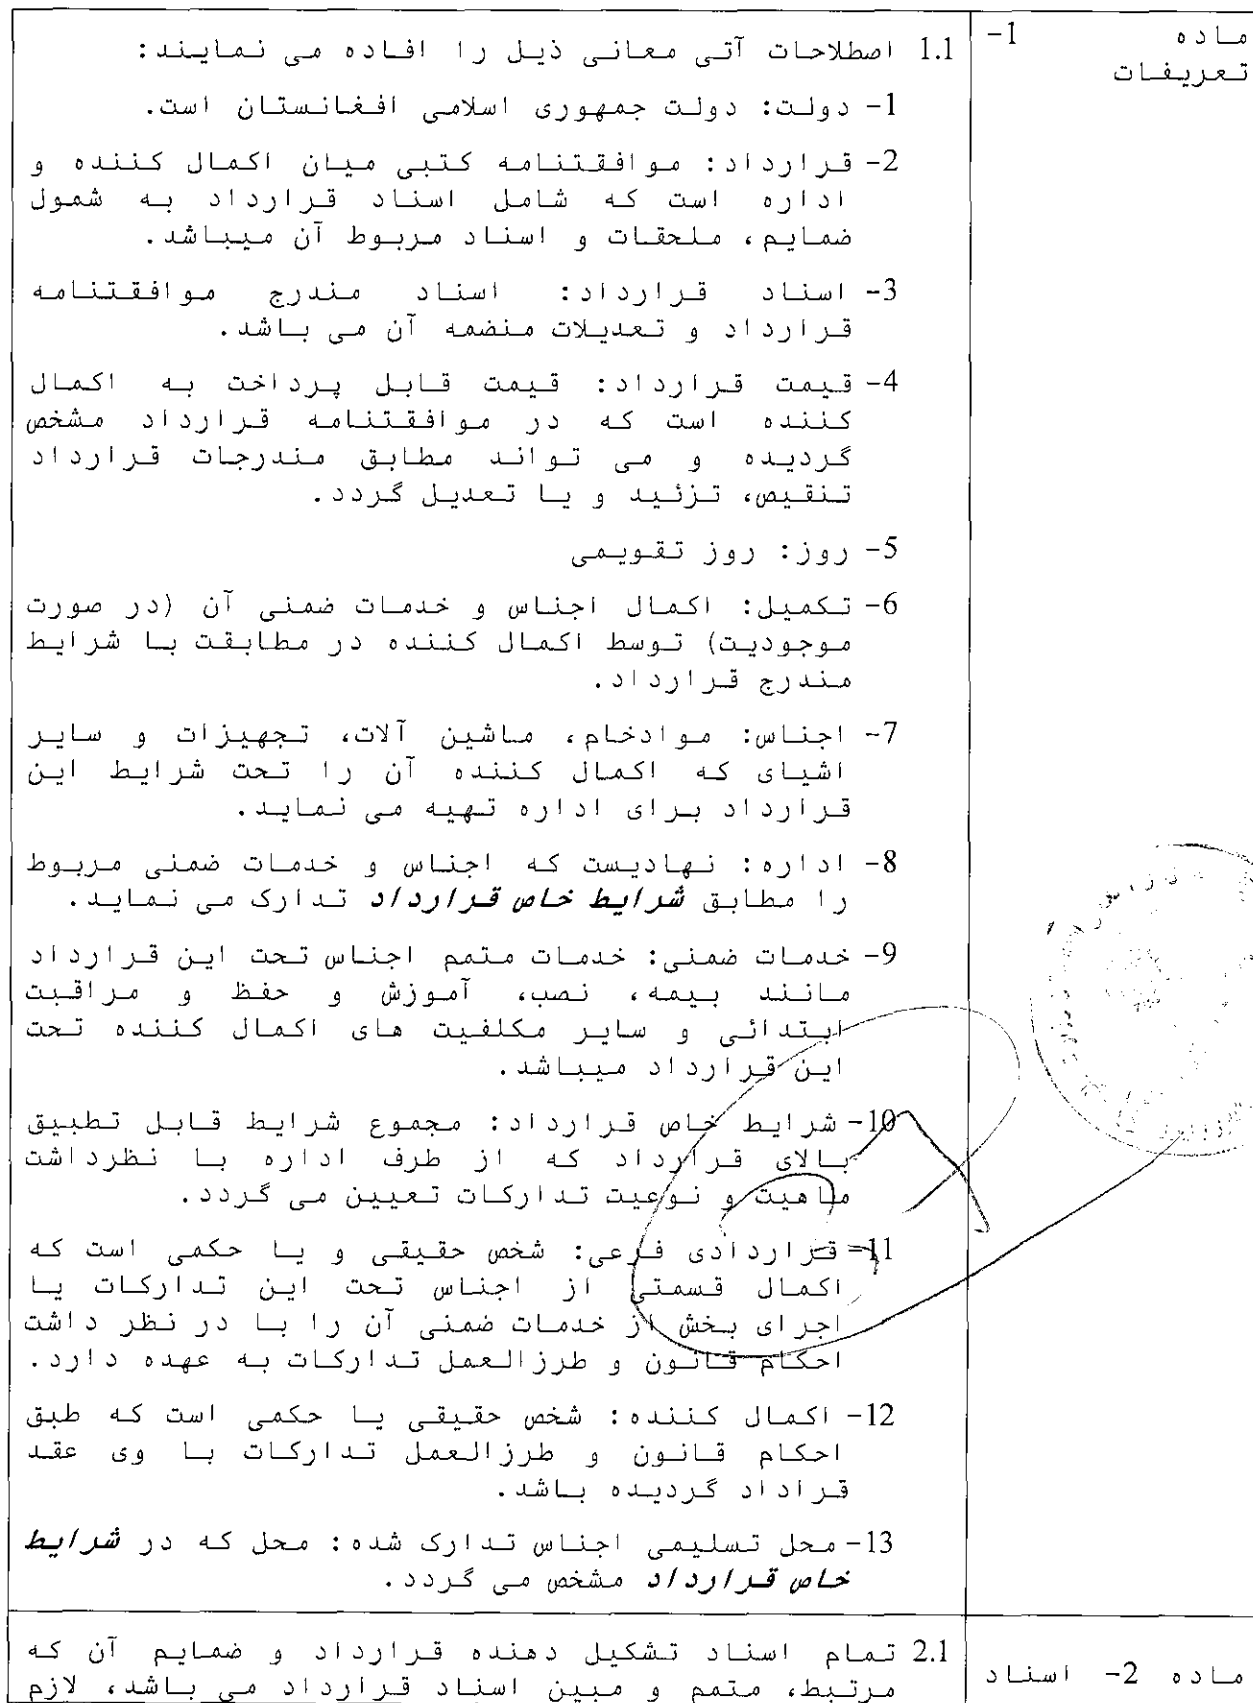 ماده 1-
تعریفات
1.1 اصطلاحات آتی معانی ذیل را افاده می نمایند:
1- دولت: دولت جمهوری اسلامی افغانستان است.
2- قرارداد: موافقتنامه کتبی میان اکمال کننده و
اداره است که شامل اسناد قرارداد به شمول
ضمایم، ملحقات و اسناد مربوط آن میباشد.
3- اسناد قرارداد: اسناد مندرج موافقتنامه
قرارداد و تعدیلات منضمه آن می باشد.
4- قیمت قرارداد: قیمت قابل پرداخت به اکمال
کننده است که در موافقتنامه قرارداد مشخص
گردیده و می تواند مطابق مندرجات قرارداد
تنقیص، تزئید و یا تعدیل گردد.
5- روز: روز تقویمی
6- تکمیل: اکمال اجناس و خدمات ضمنی آن (در صورت
موجودیت) توسط اکمال کننده در مطابقت با شرایط
مندرج قرارداد.
7- اجناس: موادخام، ماشین آلات، تجهیزات و سایر
اشیای که اکمال کننده آن را تحت شرایط این
قرارداد برای اداره تهیه می نماید.
8- اداره: نهادیست که اجناس و خدمات ضمنی مربوط
را مطابق شرایط خاص قرارداد تدارک می نماید.
9- خدمات ضمنی: خدمات متمم اجناس تحت این قرارداد
مانند بیمه، نصب، آموزش و حفظ و مراقبت
ابتدائی و سایر مکلفیت های اکمال کننده تحت
این قرارداد میباشد.
10- شرایط خاص قرارداد: مجموع شرایط قابل تطبیق
بالای قرارداد که از طرف اداره با نظرداشت
ماهیت و نوعیت تدارکات تعیین می گردد.
11- قراردادی فرعی: شخص حقیقی و یا حکمی است که
اکمال قسمتی از اجناس تحت این تدارکات یا
اجرای بخش از خدمات ضمنی آن را با در نظر داشت
احکام قانون و طرزالعمل تدارکات به عهده دارد.
12- اکمال کننده: شخص حقیقی یا حکمی است که طبق
احکام قانون و طرزالعمل تدارکات با وی عقد
قراداد گردیده باشد.
13- محل تسلیمی اجناس تدارک شده: محل که در شرایط
خاص قرارداد مشخص می گردد.
ماده 2- اسناد
2.1 تمام اسناد تشکیل دهنده قرارداد و ضمایم آن که
مرتبط، متمم و مبین اسناد قرارداد می باشد، لازم